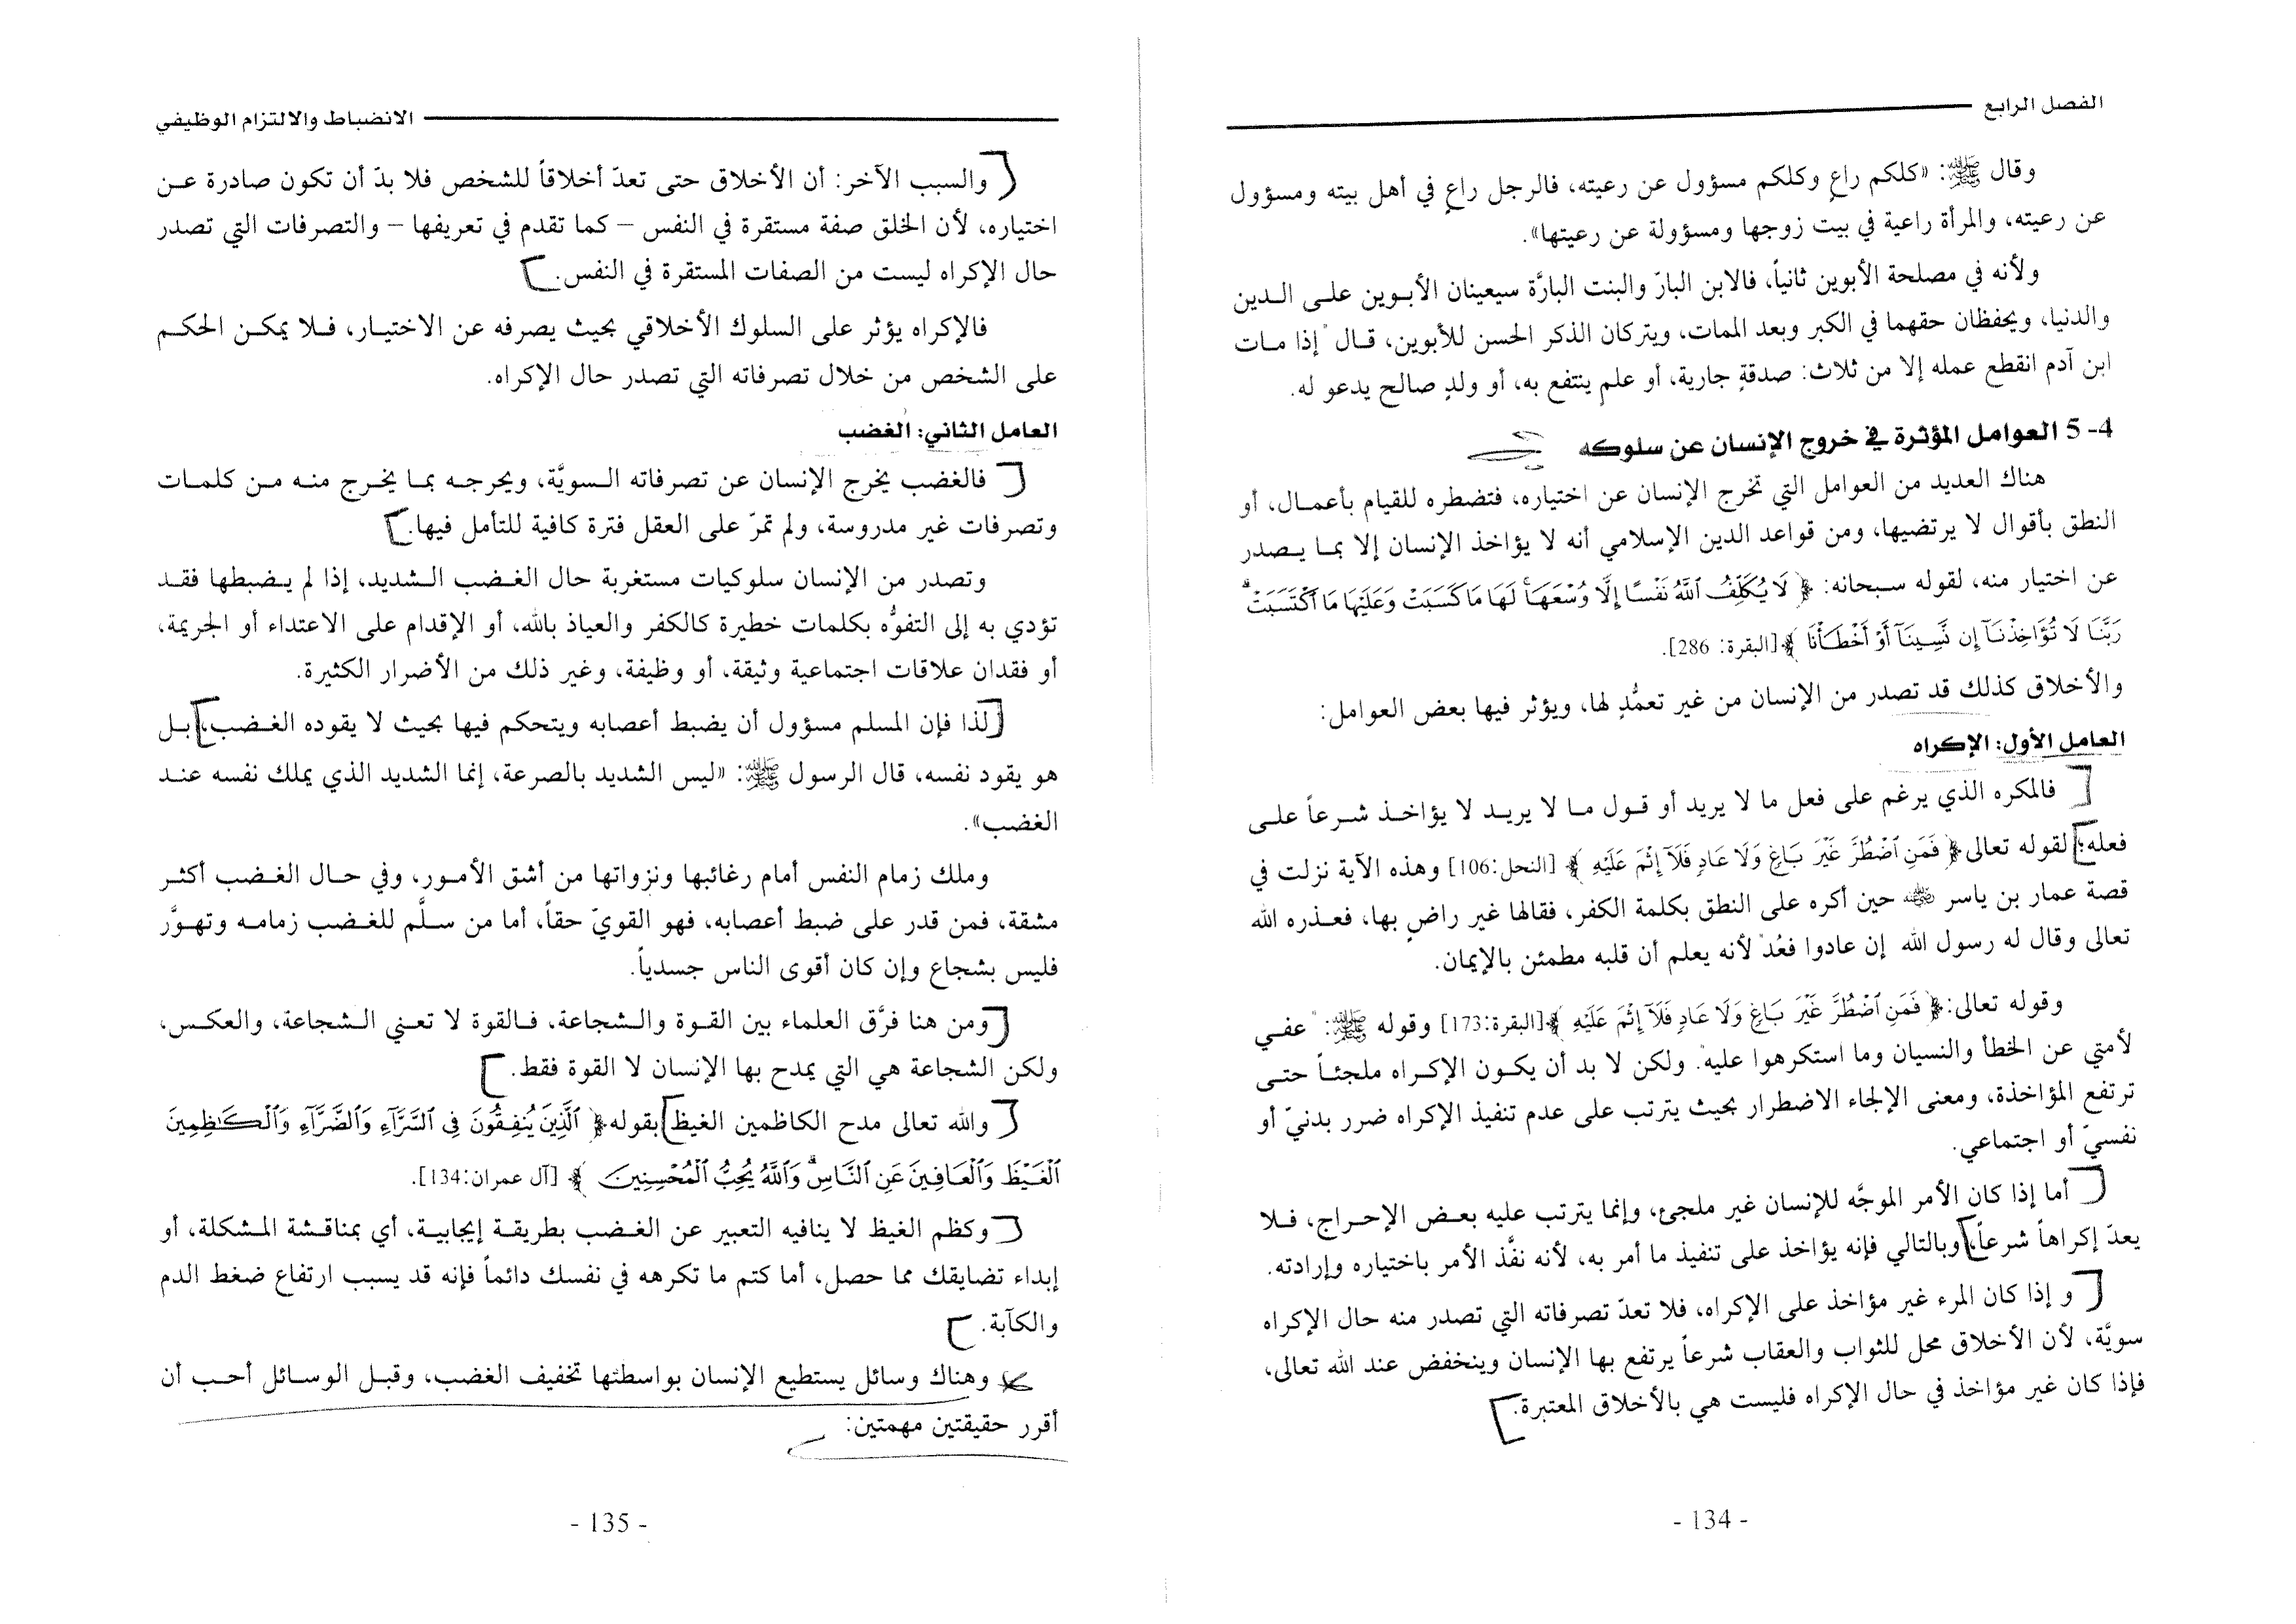 الفصل الرابع
وقال ﷺ: «كلكم راعٍ وكلكم مسؤول عن رعيته، فالرجل راعٍ في أهل بيته ومسؤول
عن رعيته، والمرأة راعية في بيت زوجها ومسؤولة عن رعيتها».
ولأنه في مصلحة الأبوين ثانياً، فالابن البارّ والبنت البارَّة سيعينان الأبوين على الدين
والدنيا، ويحفظان حقهما في الكبر وبعد الممات، ويتركان الذكر الحسن للأبوين، قال "إذا مات
ابن آدم انقطع عمله إلا من ثلاث: صدقةٍ جارية، أو علمٍ ينتفع به، أو ولدٍ صالح يدعو له.
4- 5 العوامل المؤثرة في خروج الإنسان عن سلوكه
هناك العديد من العوامل التي تخرج الإنسان عن اختياره، فتضطره للقيام بأعمال، أو
النطق بأقوال لا يرتضيها، ومن قواعد الدين الإسلامي أنه لا يؤاخذ الإنسان إلا بما يصدر
عن اختيار منه، لقوله سبحانه: ﴿ لَا يُكَلِّفُ ٱللَّهُ نَفْسًا إِلَّا وُسْعَهَا ۚ لَهَا مَا كَسَبَتْ وَعَلَيْهَا مَا ٱكْتَسَبَتْ ۗ
رَبَّنَا لَا تُؤَاخِذْنَآ إِن نَّسِينَآ أَوْ أَخْطَأْنَا ﴾ [البقرة: 286].
والأخلاق كذلك قد تصدر من الإنسان من غير تعمُّدٍ لها، ويؤثر فيها بعض العوامل:
العامل الأول: الإكراه
فالمكره الذي يرغم على فعل ما لا يريد أو قول ما لا يريد لا يؤاخذ شرعاً على
فعله؛ لقوله تعالى ﴿ فَمَنِ ٱضْطُرَّ غَيْرَ بَاغٍ وَلَا عَادٍ فَلَآ إِثْمَ عَلَيْهِ ﴾ [النحل:106] وهذه الآية نزلت في
قصة عمار بن ياسر ﷺ حين أكره على النطق بكلمة الكفر، فقالها غير راضٍ بها، فعذره الله
تعالى وقال له رسول الله إن عادوا فعُد" لأنه يعلم أن قلبه مطمئن بالإيمان.
وقوله تعالى: ﴿ فَمَنِ ٱضْطُرَّ غَيْرَ بَاغٍ وَلَا عَادٍ فَلَآ إِثْمَ عَلَيْهِ ﴾ [البقرة:173] وقوله ﷺ: "عفي
لأمتي عن الخطأ والنسيان وما استكرهوا عليه". ولكن لا بد أن يكون الإكراه ملجئاً حتى
ترتفع المؤاخذة، ومعنى الإلجاء الاضطرار بحيث يترتب على عدم تنفيذ الإكراه ضرر بدنيّ أو
نفسيّ أو اجتماعي.
أما إذا كان الأمر الموجَّه للإنسان غير ملجئ، وإنما يترتب عليه بعض الإحراج، فلا
يعدّ إكراهاً شرعاً، وبالتالي فإنه يؤاخذ على تنفيذ ما أمر به، لأنه نفَّذ الأمر باختياره وإرادته.
و إذا كان المرء غير مؤاخذ على الإكراه، فلا تعدّ تصرفاته التي تصدر منه حال الإكراه
سويَّة، لأن الأخلاق محل للثواب والعقاب شرعاً يرتفع بها الإنسان وينخفض عند الله تعالى،
فإذا كان غير مؤاخذ في حال الإكراه فليست هي بالأخلاق المعتبرة.
- 134 -
الانضباط والالتزام الوظيفي
والسبب الآخر: أن الأخلاق حتى تعدّ أخلاقاً للشخص فلا بدّ أن تكون صادرة عن
اختياره، لأن الخلق صفة مستقرة في النفس – كما تقدم في تعريفها – والتصرفات التي تصدر
حال الإكراه ليست من الصفات المستقرة في النفس.
فالإكراه يؤثر على السلوك الأخلاقي بحيث يصرفه عن الاختيار، فلا يمكن الحكم
على الشخص من خلال تصرفاته التي تصدر حال الإكراه.
العامل الثاني: الغضب
فالغضب يخرج الإنسان عن تصرفاته السويَّة، ويحرجه بما يخرج منه من كلمات
وتصرفات غير مدروسة، ولم تمرّ على العقل فترة كافية للتأمل فيها.
وتصدر من الإنسان سلوكيات مستغربة حال الغضب الشديد، إذا لم يضبطها فقد
تؤدي به إلى التفوُّه بكلمات خطيرة كالكفر والعياذ بالله، أو الإقدام على الاعتداء أو الجريمة،
أو فقدان علاقات اجتماعية وثيقة، أو وظيفة، وغير ذلك من الأضرار الكثيرة.
لذا فإن المسلم مسؤول أن يضبط أعصابه ويتحكم فيها بحيث لا يقوده الغضب، بل
هو يقود نفسه، قال الرسول ﷺ: «ليس الشديد بالصرعة، إنما الشديد الذي يملك نفسه عند
الغضب».
وملك زمام النفس أمام رغائبها ونزواتها من أشق الأمور، وفي حال الغضب أكثر
مشقة، فمن قدر على ضبط أعصابه، فهو القويّ حقاً، أما من سلَّم للغضب زمامه وتهوَّر
فليس بشجاع وإن كان أقوى الناس جسدياً.
ومن هنا فرَّق العلماء بين القوة والشجاعة، فالقوة لا تعني الشجاعة، والعكس،
ولكن الشجاعة هي التي يمدح بها الإنسان لا القوة فقط.
والله تعالى مدح الكاظمين الغيظ بقوله ﴿ ٱلَّذِينَ يُنفِقُونَ فِى ٱلسَّرَّآءِ وَٱلضَّرَّآءِ وَٱلْكَـٰظِمِينَ
ٱلْغَيْظَ وَٱلْعَافِينَ عَنِ ٱلنَّاسِ ۗ وَٱللَّهُ يُحِبُّ ٱلْمُحْسِنِينَ ﴾ [آل عمران:134].
وكظم الغيظ لا ينافيه التعبير عن الغضب بطريقة إيجابية، أي بمناقشة المشكلة، أو
إبداء تضايقك مما حصل، أما كتم ما تكرهه في نفسك دائماً فإنه قد يسبب ارتفاع ضغط الدم
والكآبة.
وهناك وسائل يستطيع الإنسان بواسطتها تخفيف الغضب، وقبل الوسائل أحب أن
أقرر حقيقتين مهمتين:
- 135 -